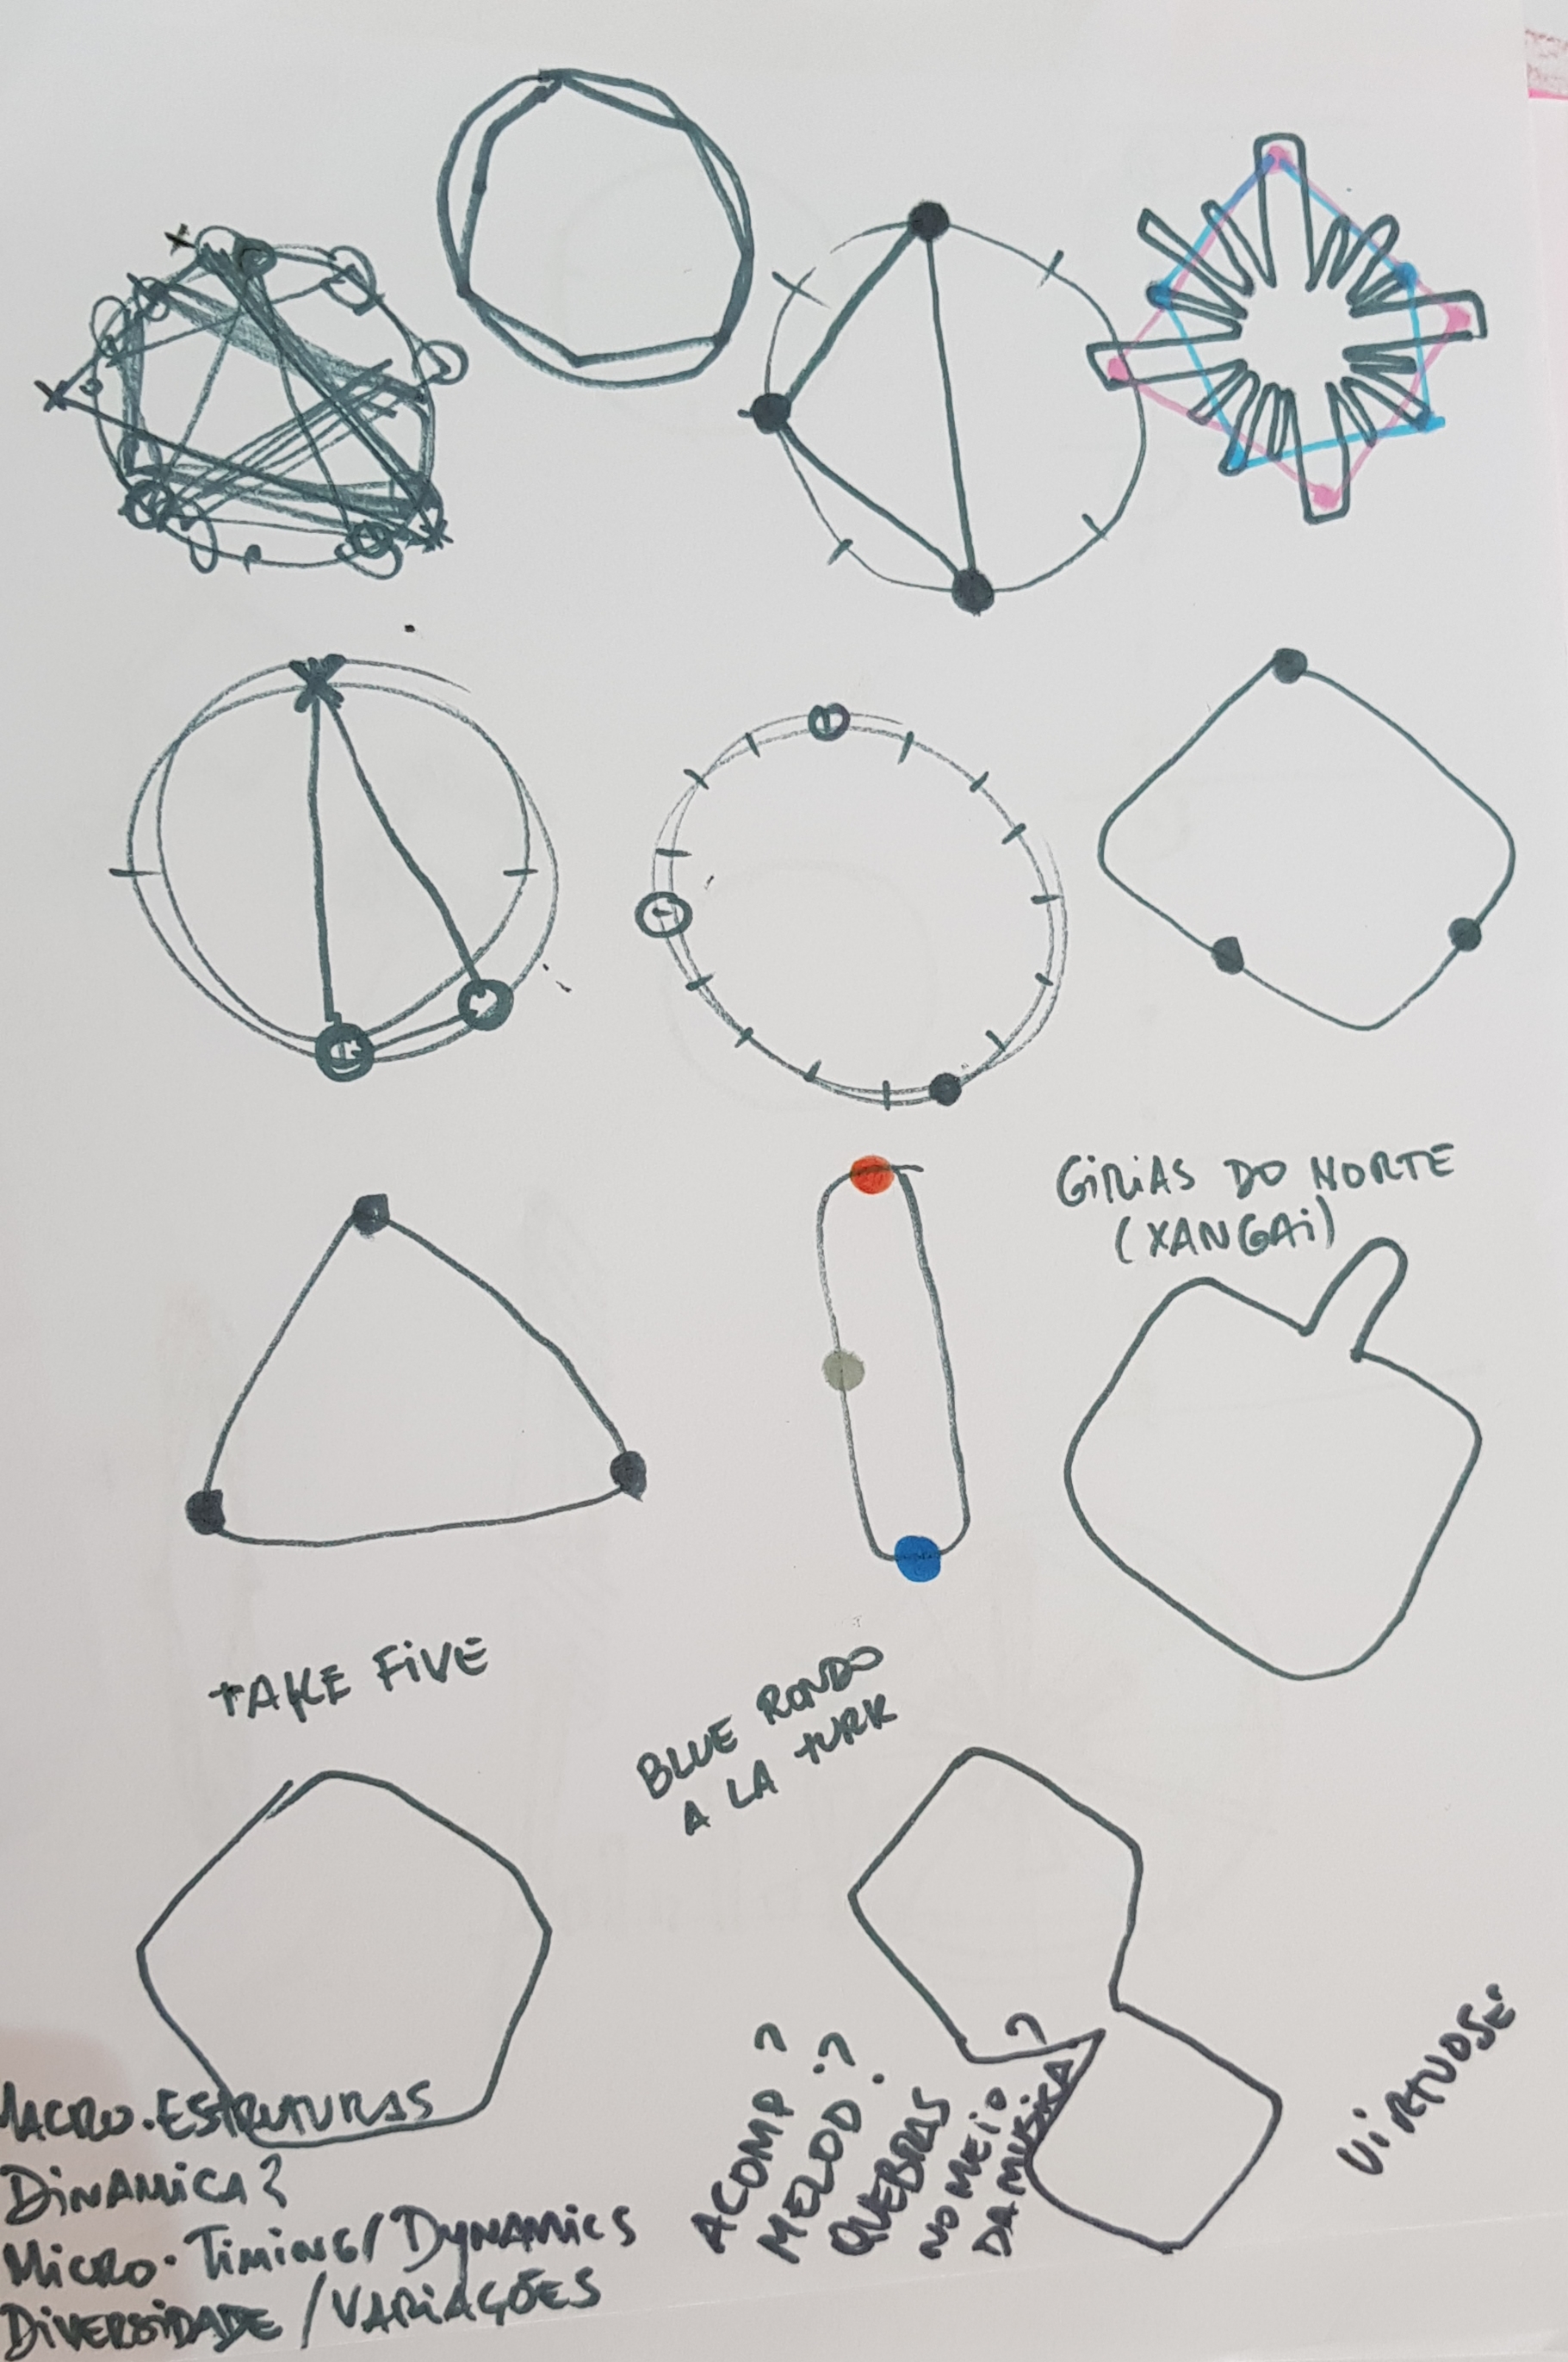 GÍRIAS DO NORTE
(XANGAI)
TAKE FIVE
BLUE RONDO
A LA TURK
MACRO-ESTRUTURAS
DINAMICA?
MICRO-TIMING/DYNAMICS
DIVERSIDADE/VARIAÇÕES
ACOMP?
MELOD.?
QUEBRAS
NO MEIO
DA MUSICA?
VIRTUOSE